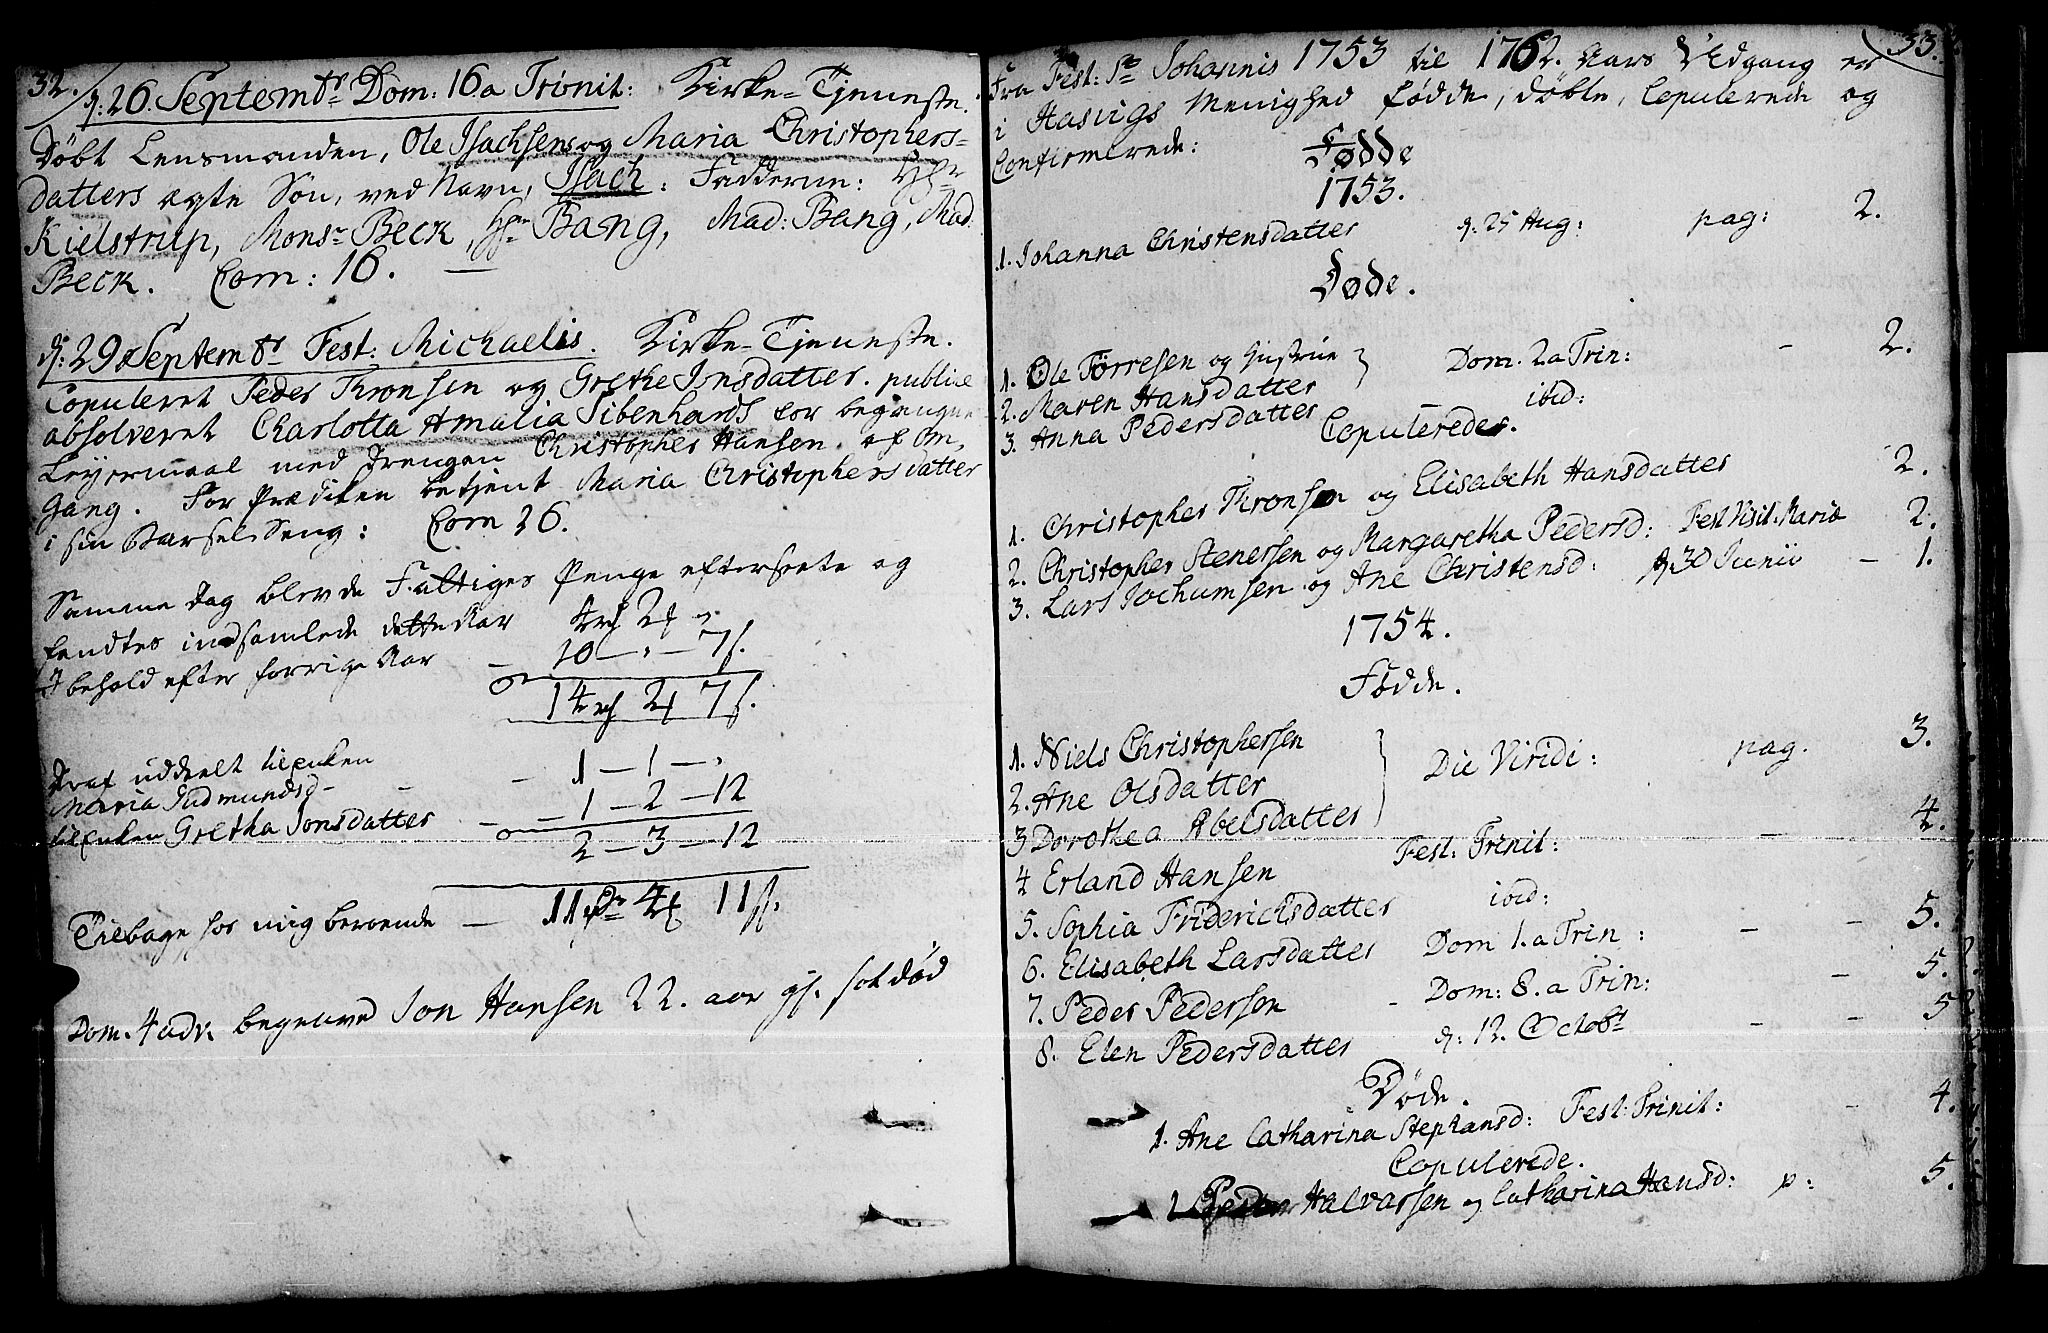 32.
d: 26 Septembr Dom: 16 a Trinit: Kirke-Tjeneste.
Døbt Lensmanden, Ole Isachsens og Maria Christophers-
datters ægte Søn, ved Navn, Isach: Fadderne: Hr
Kielstrup, Monsr Beck, Hr Bang, Mad: Bang, Mad
Beck. Com: 16.
d: 29 Septembr Fest: Michaelis. Kirke-Tjeneste.
Copuleret Peder Thronsen og Grethe Jonsdatter. publice
absolveret Charlotta Amalia Sibenhards for begangne
Leyermaal med Drengen Christopher Hansen. 
Gang. For Prædiken betjent Maria Christophersdatter
i sin Barsel Seng: Com 26.
Samme Dag blev de Fattiges Penge efterseete og
fandtes indsamlede dette Aar 4 rd 2 "
I behold efter forrige Aar - 10 - " - 7 s.
14 rd 2 7 s.
Deraf uddeelt til Enken
Maria Gudmundsd - - 1 - 1 - "
til Enken Gretha Jonsdatter - - 1 - 2 - 12
2 - 3 - 12
Tilbage hos mig beroende - 11 rdr 4 11 s.
Dom. 4 adv. begravet Jon Hansen 22. aar gl. sotdød
33.
Fra Fest: St Johannis 1753 til 1762. Aars Udgang er
i Hasvigs Menighed fødde, døbte, Copulerede og
Confirmerede:
Fødde
1753.
1. Johanna Christensdatter d: 25 Aug: pag: 2.
Døde.
1. Ole Torresen og Hustrue } Dom. 2 a Trin: - 2.
2. Maren Hansdatter
3. Anna Pedersdatter ibid:
Copulerede.
1. Christopher Thronsen og Elisabeth Hansdatter 2.
2. Christopher Stenersen og Margaretha Pedersd: Fest Visit. Mariæ 2.
3. Lars Jochumsen og Ane Christensd: d 30 Junii - 1.
1754.
Fødde.
1. Niels Christophersen
2. Ane Olsdatter } Die Viridi: pag. 3.
3 Dorothea Abelsdatter
4 Erland Hansen Fest: Trinit: - 4.
5. Sophia Friderichsdatter ibid:
6. Elisabeth Larsdatter Dom 1. a Trin: - - 5.
7. Peder Pedersen - Dom: 8. a Trin: - 5.
8. Elen Pedersdatter d: 12. Octobr - - 5
Døde.
1. Ane Catharina Stephansd: Fest: Trinit: - 4.
Copulerede.
1 Peder Halvarsen og Catharina Hansd: p: 5.